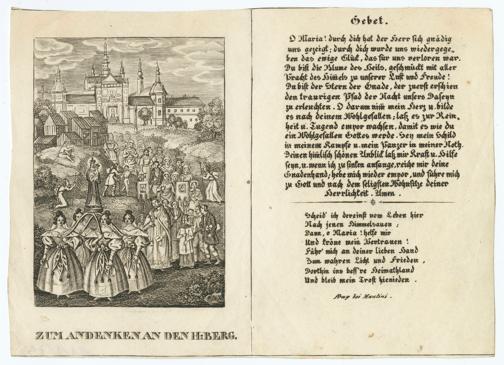 ZUM ANDENKEN AN DEN H: BERG.
Gebet.
O Maria! durch dich hat der Herr sich gnädig
uns gezeigt; durch dich wurde uns wiedergege„
ben das ewige Glük, das für uns verloren war.
Du bist die Blume des Heils, geschmükt mit aller
Pracht des Him̄els zu unserer Lust und Freude!
Du bist der Stern der Gnade, der zuerst erschien
den traurigen Pfad der Nacht unsers Daseyns
zu erleuchten. O darum nim̄ mein Herz u. bilde
es nach deinem Wohlgefallen; laß es zur Rein„
heit u. Tugend empor wachsen, damit es wie du
ein Wohlgefallen Gottes werde. Sey mein Schild
in meinem Kampfe u. mein Panzer in meiner Noth.
Deinen him̄lisch schönen Anblik laß mir Kraft u. Hilfe
seyn, u. wenn ich zu sinken anfange, reiche mir deine
Gnadenhand; hebe mich wieder empor, und führe mich
zu Gott und nach dem seligsten Wohnsitze deiner
Herrlichkeit. Amen.
Scheid' ich dereinst vom Leben hier
Nach jenen Himmelsauen;
Dann, o Maria! helfe mir
Und kröne mein Vertrauen!
Führ' mich an deiner lieben Hand
Zum wahren Licht und Frieden,
Dorthin ins bess're Heimathland
Und bleib mein Trost hienieden.
Prag bei